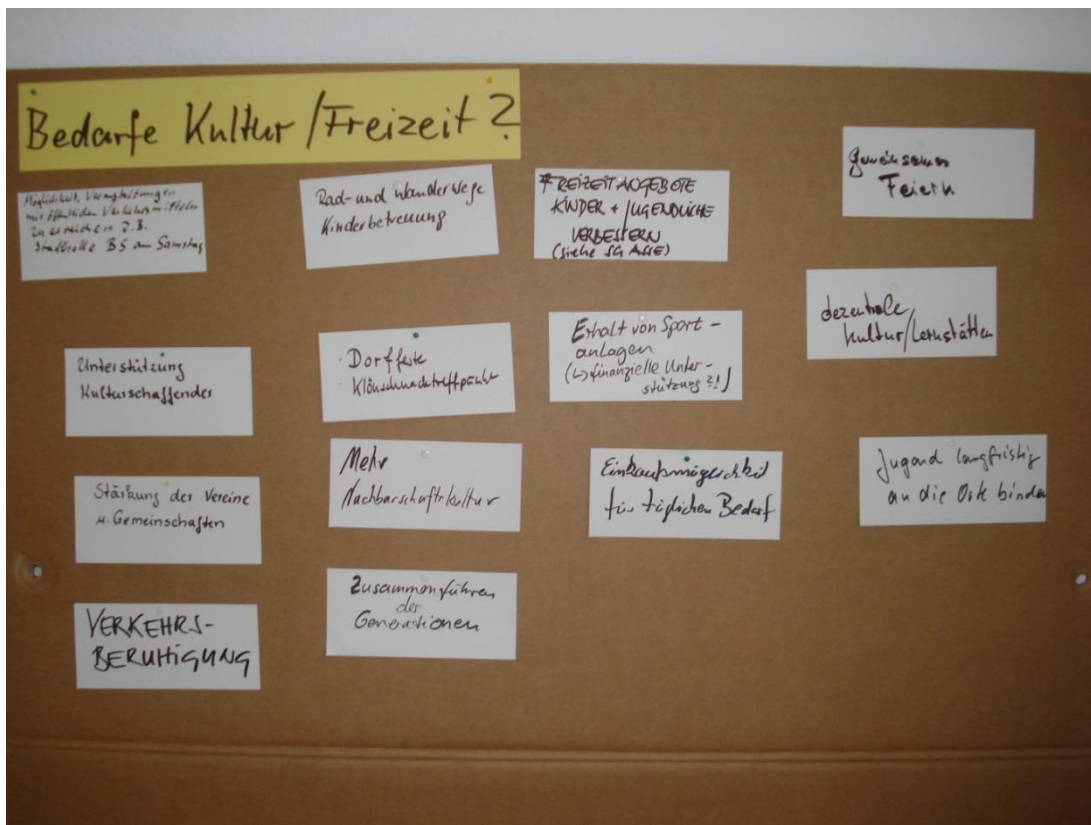 Bedarfe Kultur / Freizeit ?
Möglichkeit, Veranstaltungen
mit öffentlichen Verkehrsmitteln
zu erreichen z.B.
Stadthalle BS am Samstag
Unterstützung
Kulturschaffender
Stärkung der Vereine
u. Gemeinschaften
VERKEHRS-
BERUHIGUNG
Rad- und Wanderwege
Kinderbetreuung
· Dorffeste
· Klönschnacktreffpunkt
Mehr
Nachbarschaftskultur
Zusammenführen
der
Generationen
FREIZEITANGEBOTE
KINDER + JUGENDLICHE
VERBESSERN
(siehe SG ASSE)
Erhalt von Sport-
anlagen
(↳ finanzielle Unter-
stützung ?!)
Einkaufsmöglichkeit
für täglichen Bedarf
gemeinsames
Feiern
dezentrale
Kultur/Lernstätten
Jugend langfristig
an die Orte binden